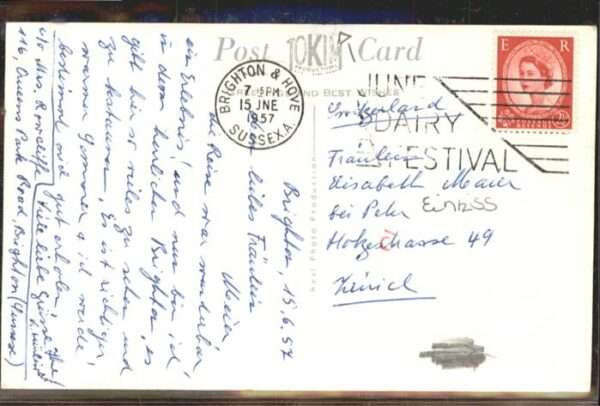 Post Card
TOKIM
BEST WISHES
BRIGHTON & HOVE
7-PM
15 JNE
1957
SUSSEX.A
JUNE
DAIRY
FESTIVAL
E R
Fräulein
Elisabeth Maier
bei Peter
Hotzestrasse 49
Zürich
Brighton, 15.6.57
liebes Fräulein
Maier,
die Reise war wunderbar,
ein Erlebnis! und nun bin ich
in dem herrlichen Brighton, es
gibt hier so vieles zu sehen und
zu bestaunen. Es ist richtiger,
warmer Sommer & ich werde
bestimmt und gut erholen.
Viele liebe Grüsse Ihre
c/o Mrs. Rowcliffe
116, Queens Park Road, Brighton (Sussex)